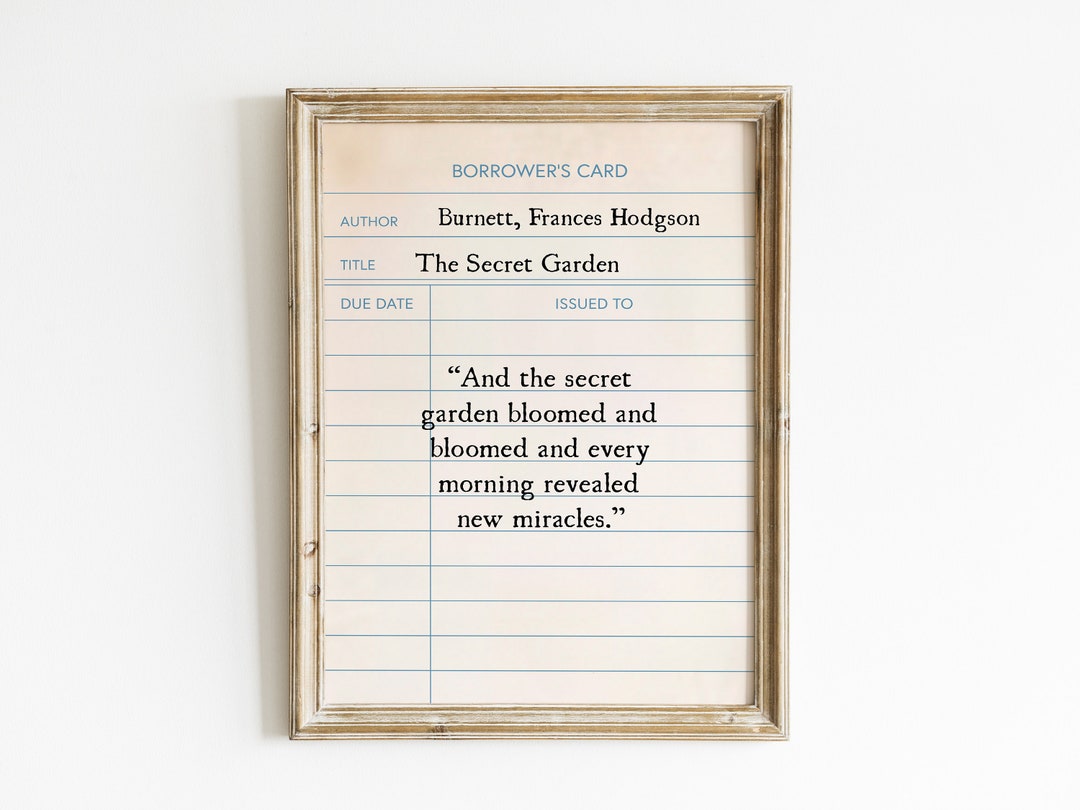 BORROWER'S CARD
AUTHOR Burnett, Frances Hodgson
TITLE The Secret Garden
DUE DATE ISSUED TO
“And the secret
garden bloomed and
bloomed and every
morning revealed
new miracles.”